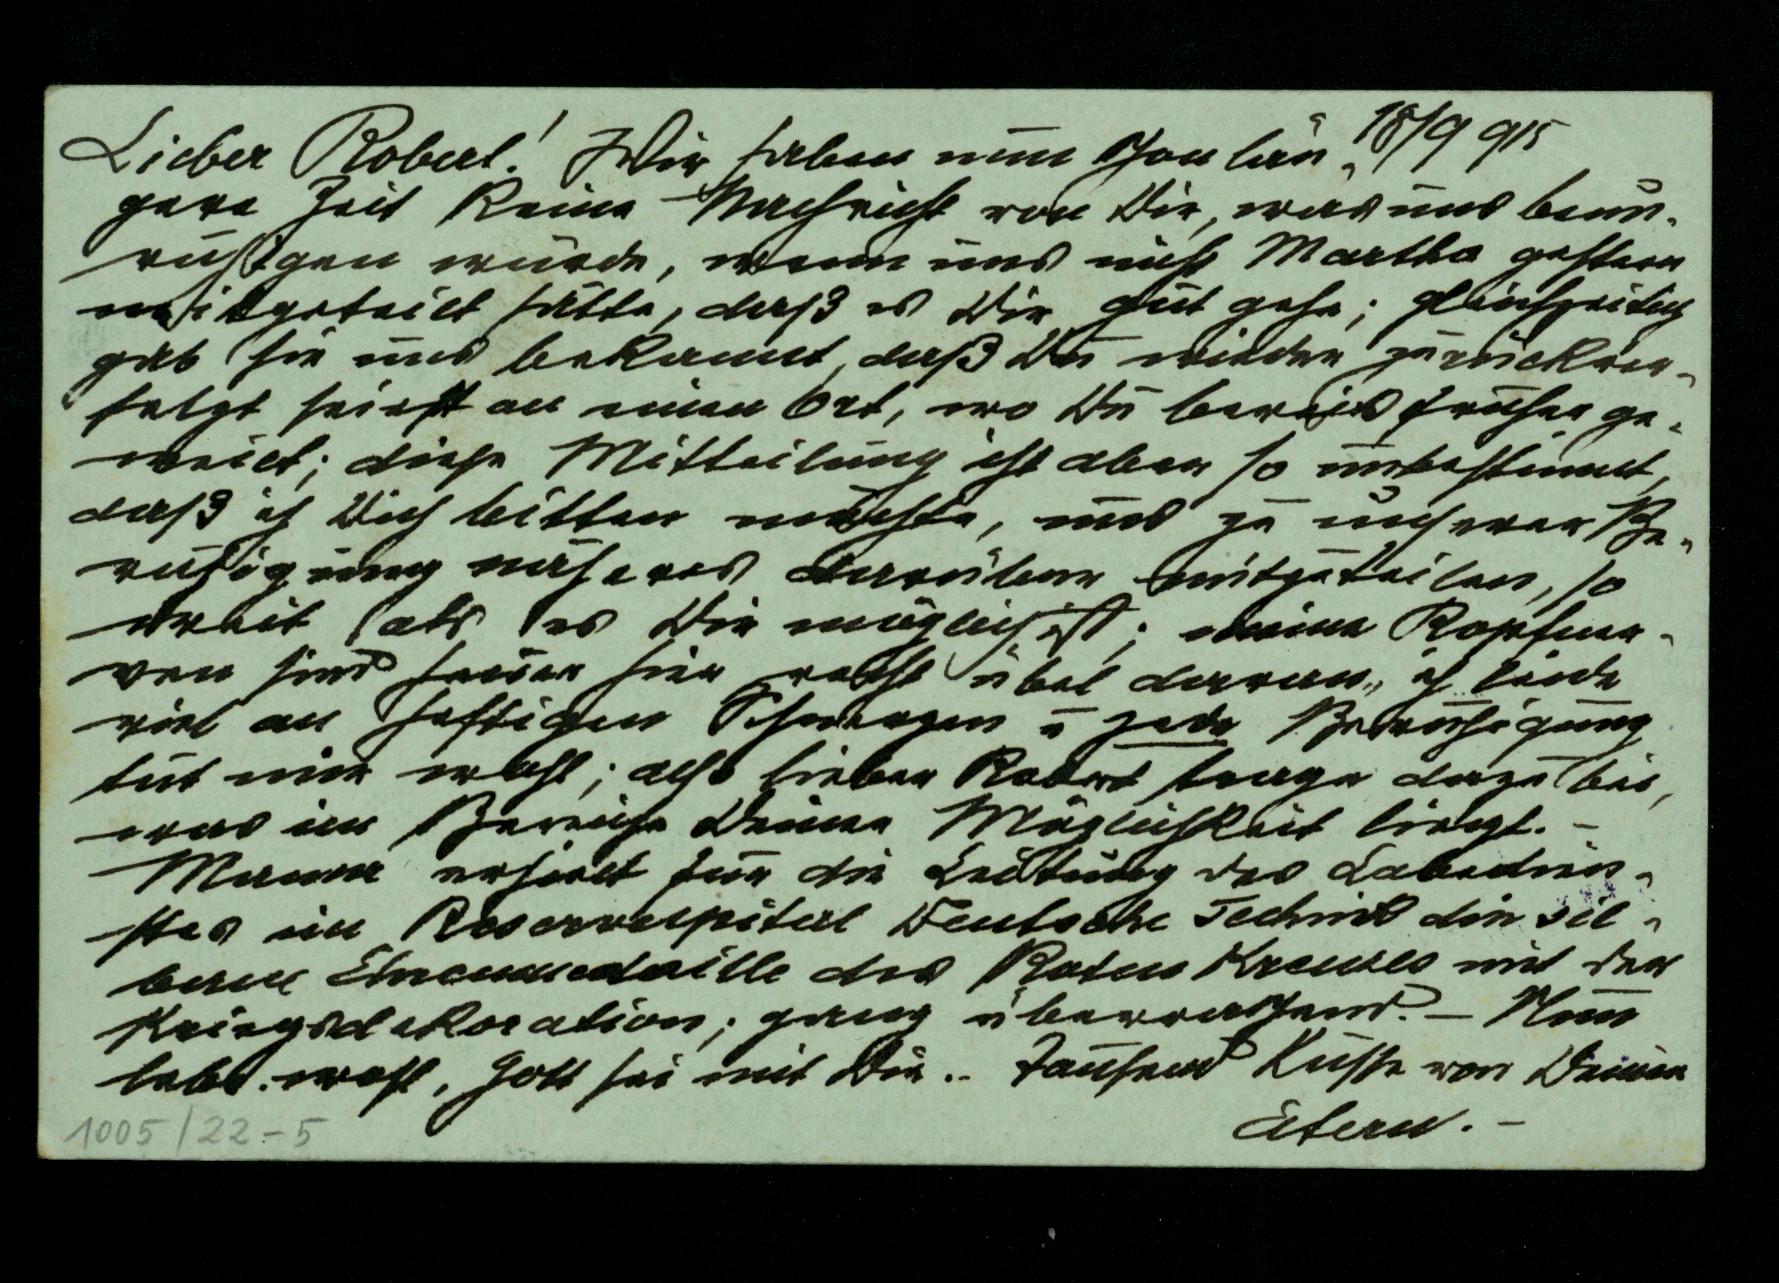 18/9 915
Lieber Robert! Wir haben nun schon län-
gere Zeit keine Nachricht von Dir, was uns beun-
ruhigen würde, wenn uns nicht Martha gestern
mitgeteilt hätte, daß es Dir gut gehe; gleichzeitig
gab sie uns bekannt, daß Du wieder zurückver-
folgt seiest an einen Ort, wo Du bereits früher ge-
weilt; diese Mitteilung ist aber so unbestimmt,
daß ich Dich bitten möchte, uns zu unserer Be-
ruhigung näheres darüber mitzuteilen, so
weit als es Dir möglich ist; meine Kopfner-
ven sind heuer hier recht übel daran, ich leide
viel an heftigen Schmerzen u jede Beruhigung
tut mir wohl; also lieber Robert trage dazu bei,
was im Bereiche Deiner Möglichkeit liegt. -
Mama erhielt für die Leitung des Labedien-
stes im Reservespital Deutsche Technik die sil-
berne Ehrenmedaille des Roten Kreuzes mit der
Kriegsdekoration; ganz überraschend. - Nun
lebe wohl, Gott sei mit Dir.. Tausend Küsse von Deinen
Eltern. -
1005/22-5